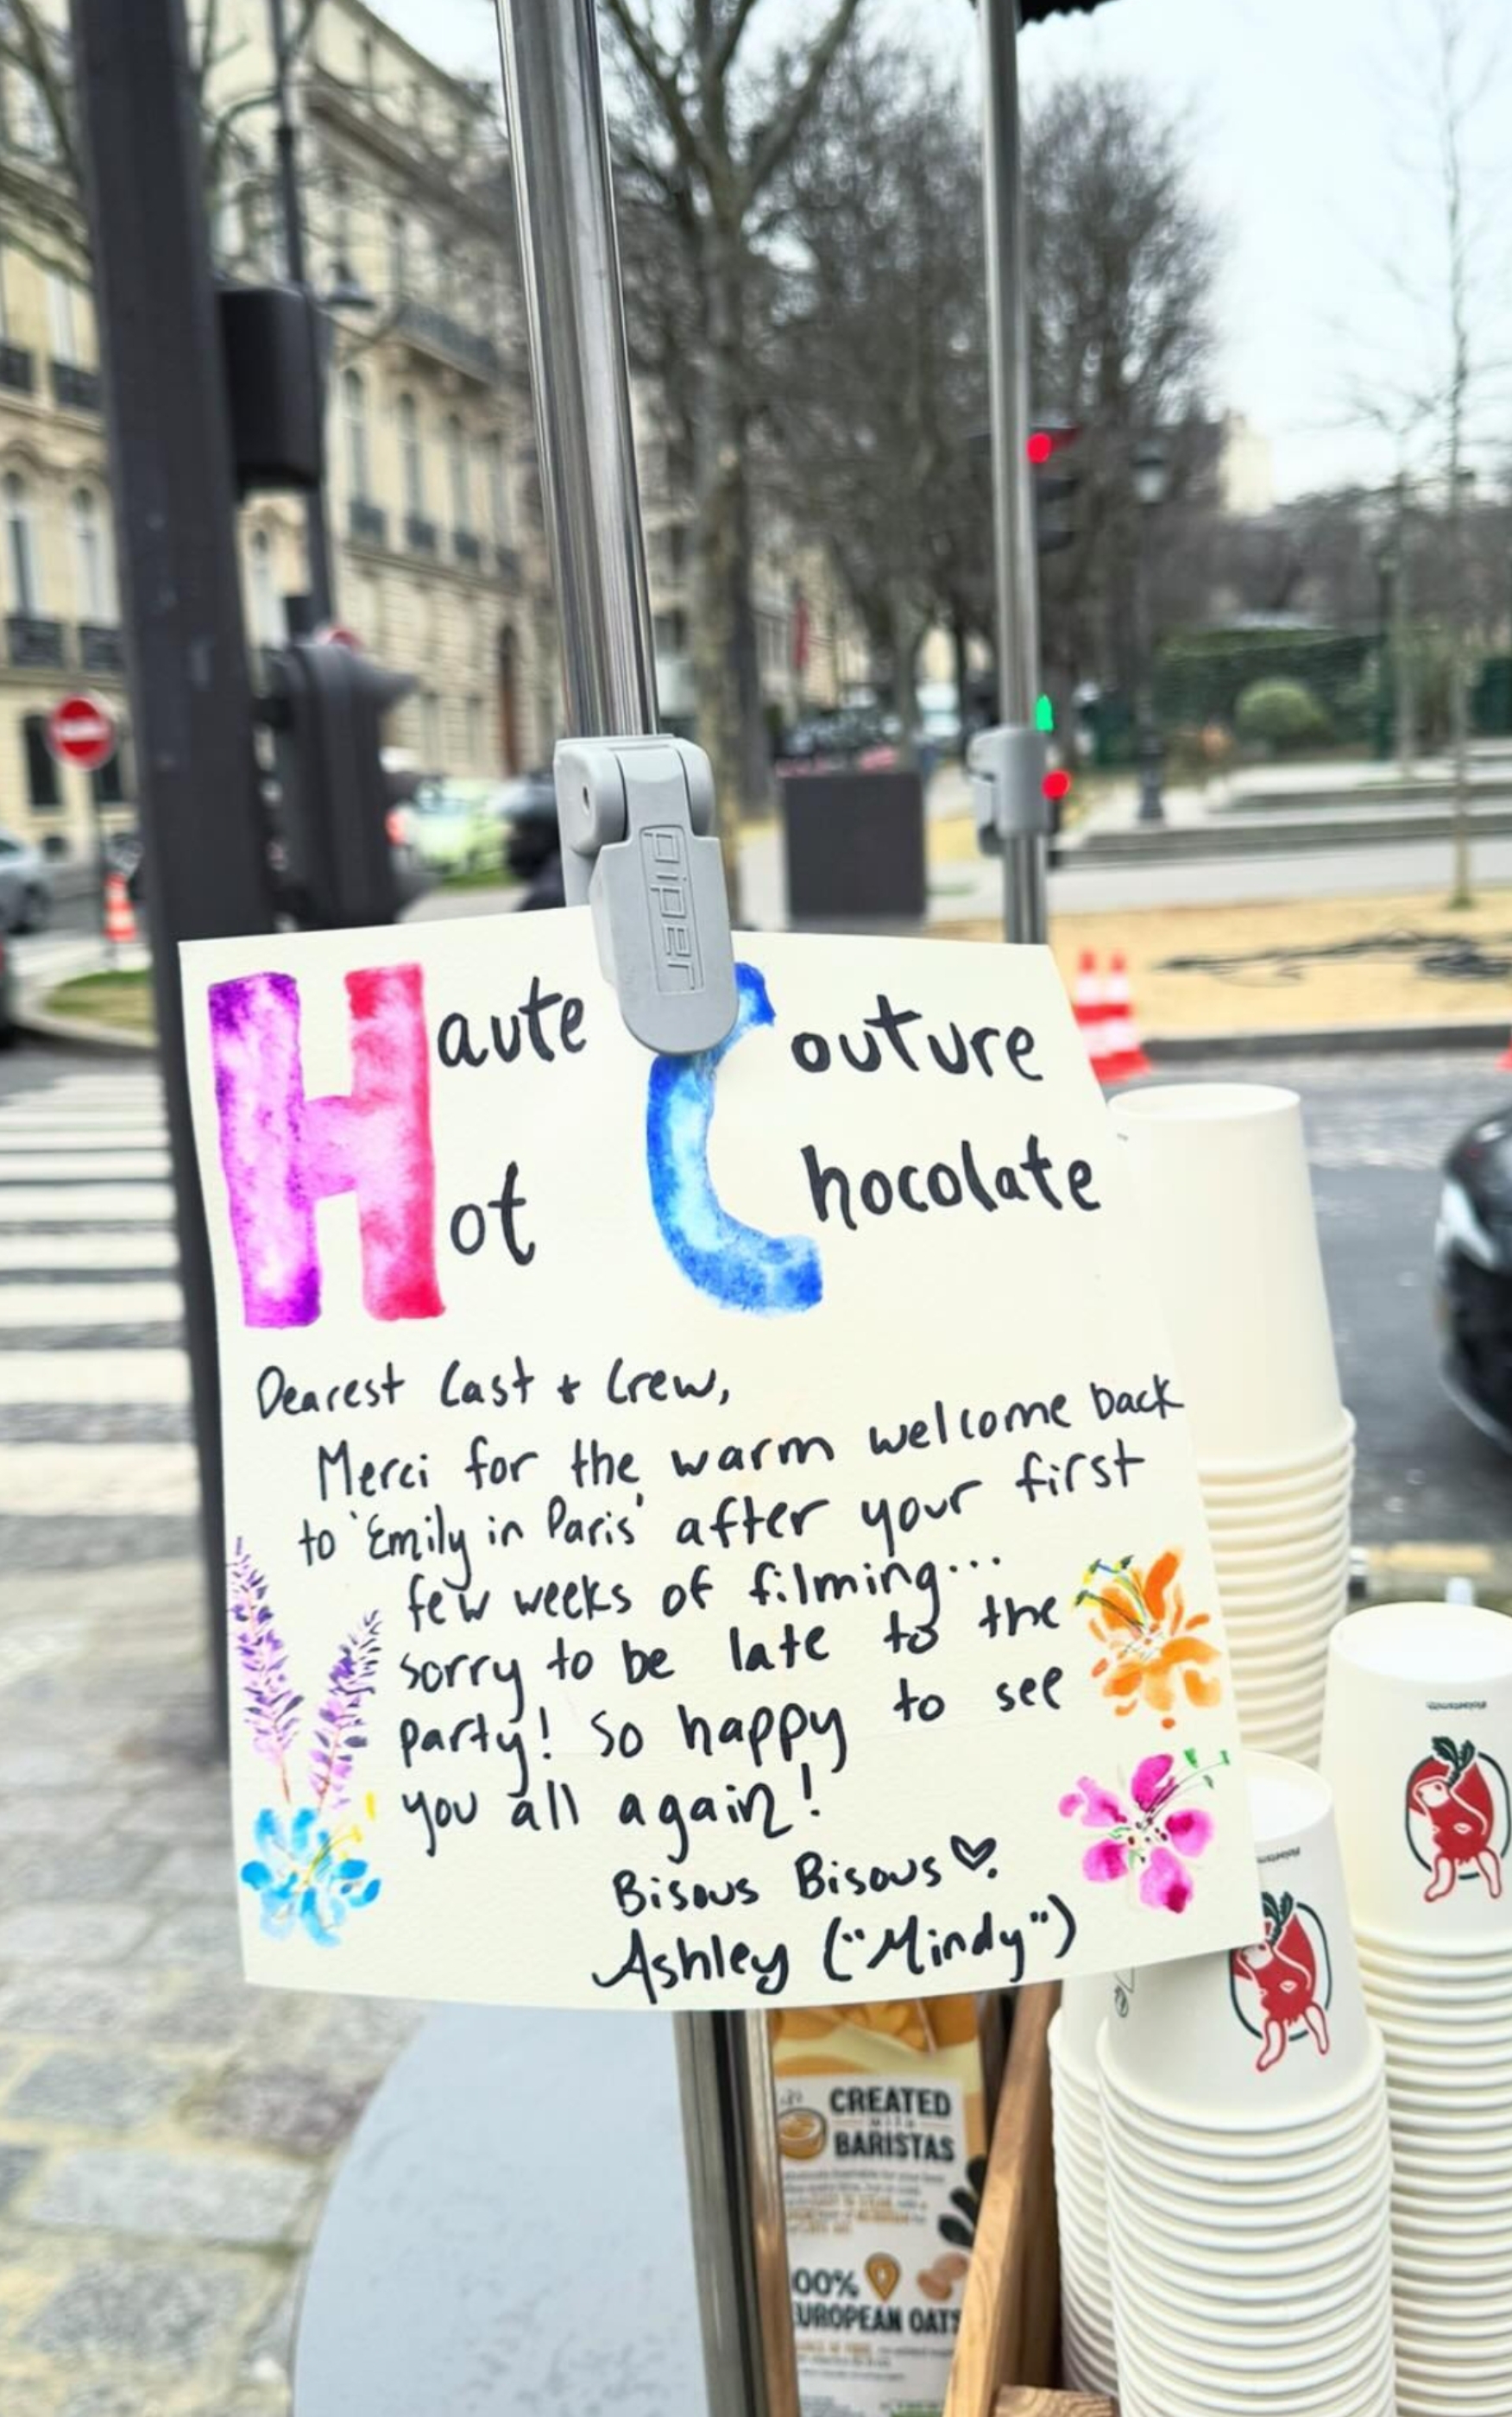 piper
Haute Couture
Hot Chocolate
Dearest Cast & Crew,
Merci for the warm welcome back
to 'Emily in Paris' after your first
few weeks of filming...
sorry to be late to the
party! So happy to see
you all again!
Bisous Bisous ♡.
Ashley ("Mindy")
CREATED
WITH
BARISTAS
00%
UROPEAN OATS